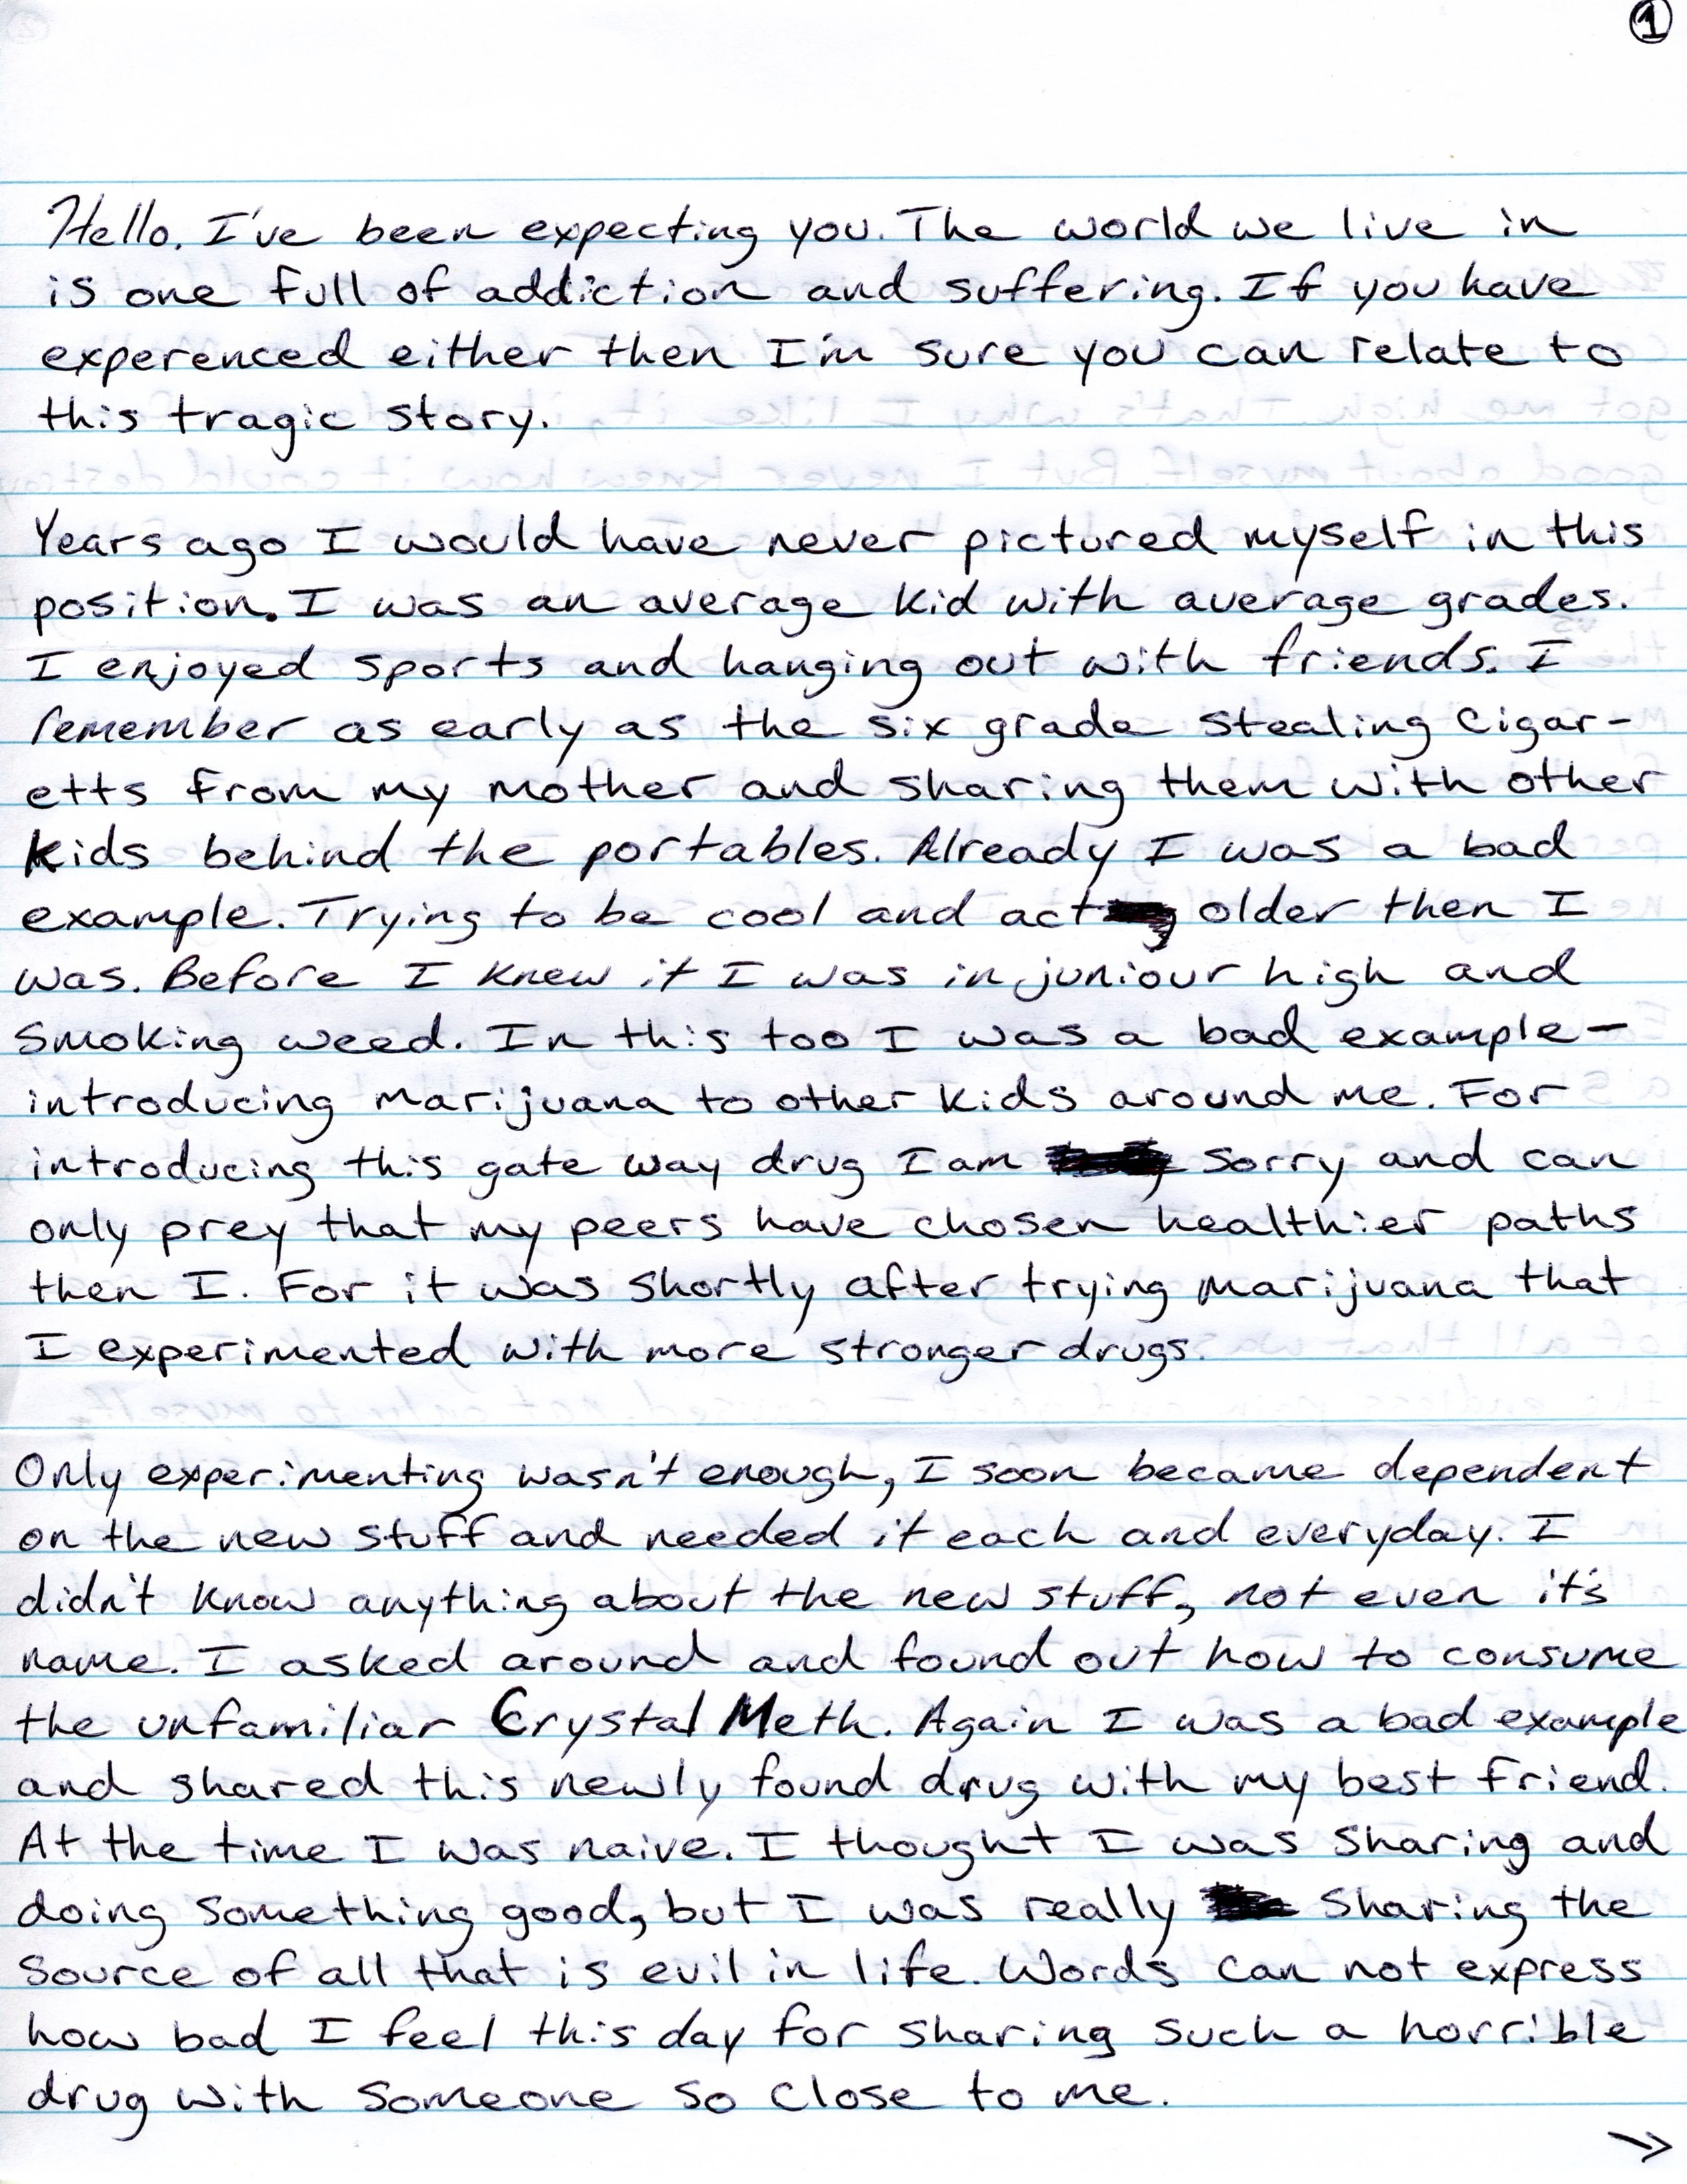 1
Hello. I've been expecting you. The world we live in
is one full of addiction and suffering. If you have
experenced either then I'm sure you can relate to
this tragic story.
Years ago I would have never pictured myself in this
position. I was an average kid with average grades.
I enjoyed sports and hanging out with friends. I
remember as early as the six grade stealing cigar-
etts from my mother and sharing them with other
kids behind the portables. Already I was a bad
example. Trying to be cool and act older then I
was. Before I knew it I was in juniour high and
smoking weed. In this too I was a bad example-
introducing marijuana to other kids around me. For
introducing this gate way drug I am sorry and can
only prey that my peers have chosen healthier paths
then I. For it was shortly after trying marijuana that
I experimented with more stronger drugs.
Only experimenting wasn't enough, I soon became dependent
on the new stuff and needed it each and everyday. I
didn't know anything about the new stuff, not even it's
name. I asked around and found out how to consume
the unfamiliar Crystal Meth. Again I was a bad example
and shared this newly found drug with my best friend.
At the time I was naive. I thought I was sharing and
doing something good, but I was really sharing the
source of all that is evil in life. Words can not express
how bad I feel this day for sharing such a horrible
drug with someone so close to me.
→